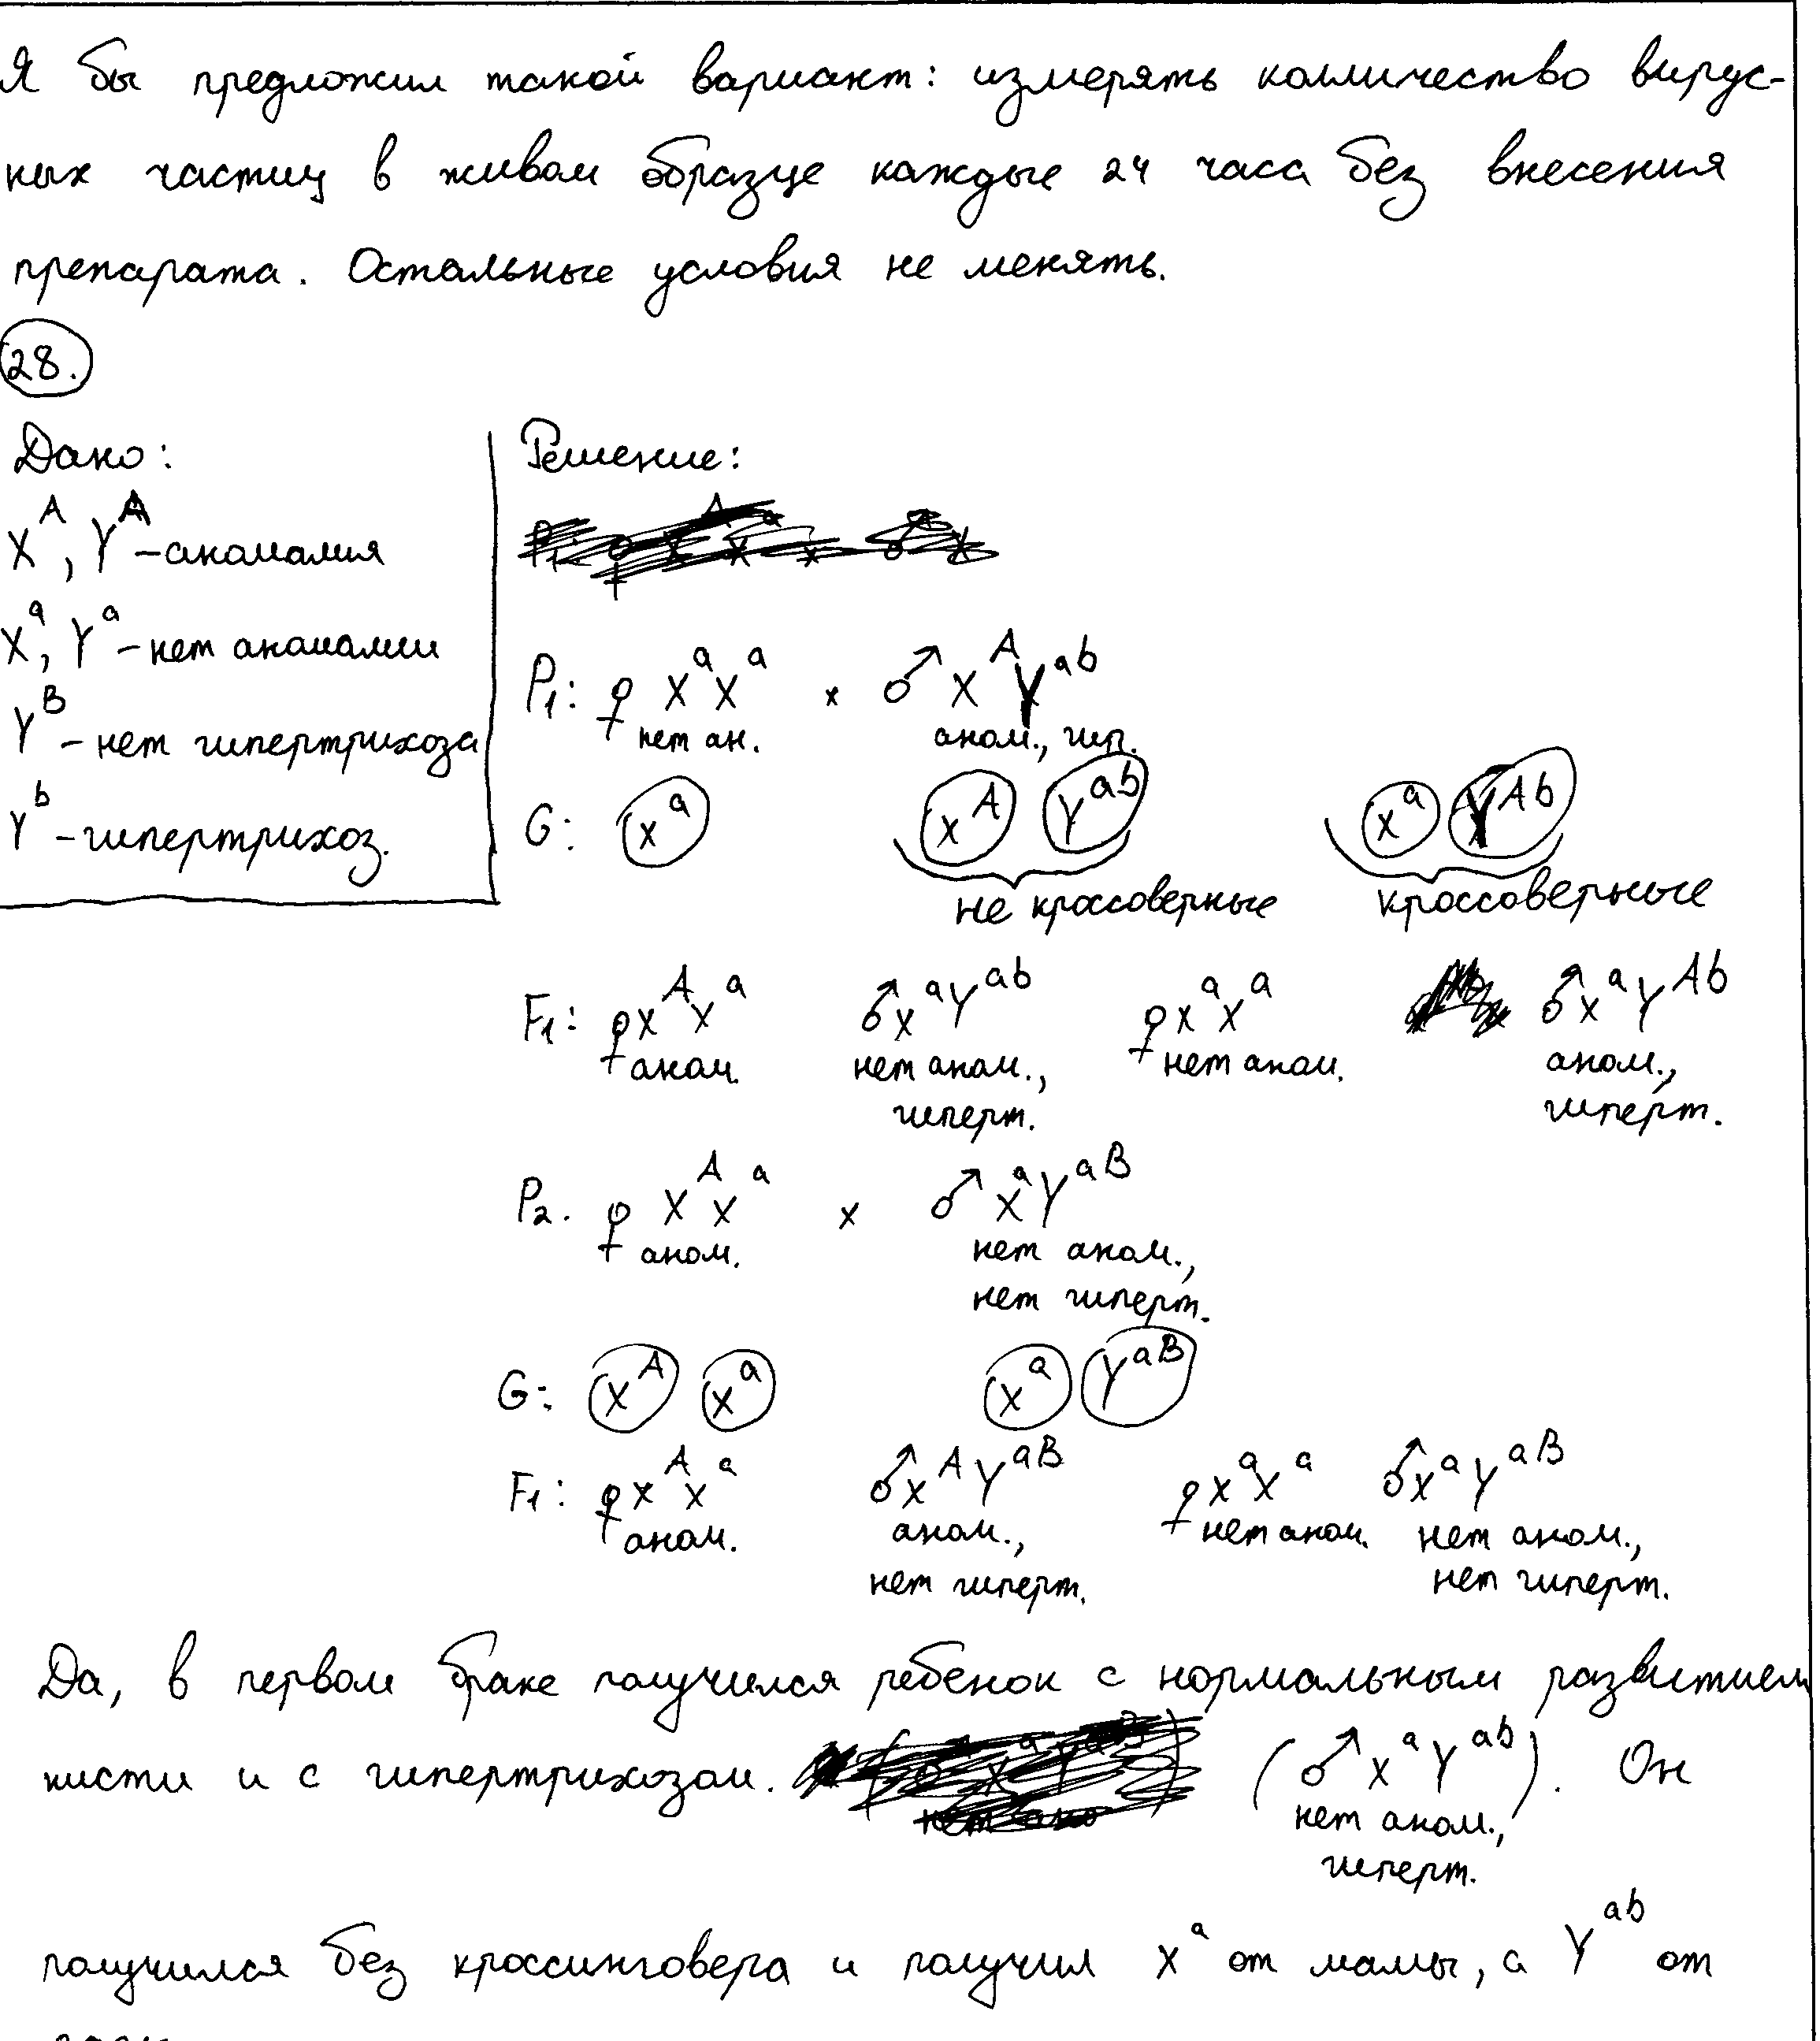 Я бы предложил такой вариант: измерять колличество вирус-
ных частиц в живом образце каждые 24 часа без внесения
препарата. Остальные условия не менять.
28.
Дано:
X^A, Y^A – аномалия
X^a, Y^a – нет аномалии
Y^B – нет гипертрихоза
Y^b – гипертрихоз.
Решение:
P₁: ♀ X^a X^a × ♂ X^A Y^ab
нет ан. аном., гип.
G: X^a X^A Y^ab X^a Y^Ab
не кроссоверные кроссоверные
F₁: ♀ X^A X^a ♂ X^a Y^ab ♀ X^a X^a ♂ X^a Y^Ab
аном. нет аном., нет аном. аном.,
гиперт. гиперт.
P₂. ♀ X^A X^a × ♂ X^a Y^aB
аном. нет аном.,
нет гиперт.
G: X^A X^a X^a Y^aB
F₁: ♀ X^A X^a ♂ X^A Y^aB ♀ X^a X^a ♂ X^a Y^aB
аном. аном., нет аном. нет аном.,
нет гиперт. нет гиперт.
Да, в первом браке получился ребенок с нормальным развитием
кисти и с гипертрихозом. (♂ X^a Y^ab). Он
нет аном.,
гиперт.
получился без кроссинговера и получил X^a от мамы, а Y^ab от